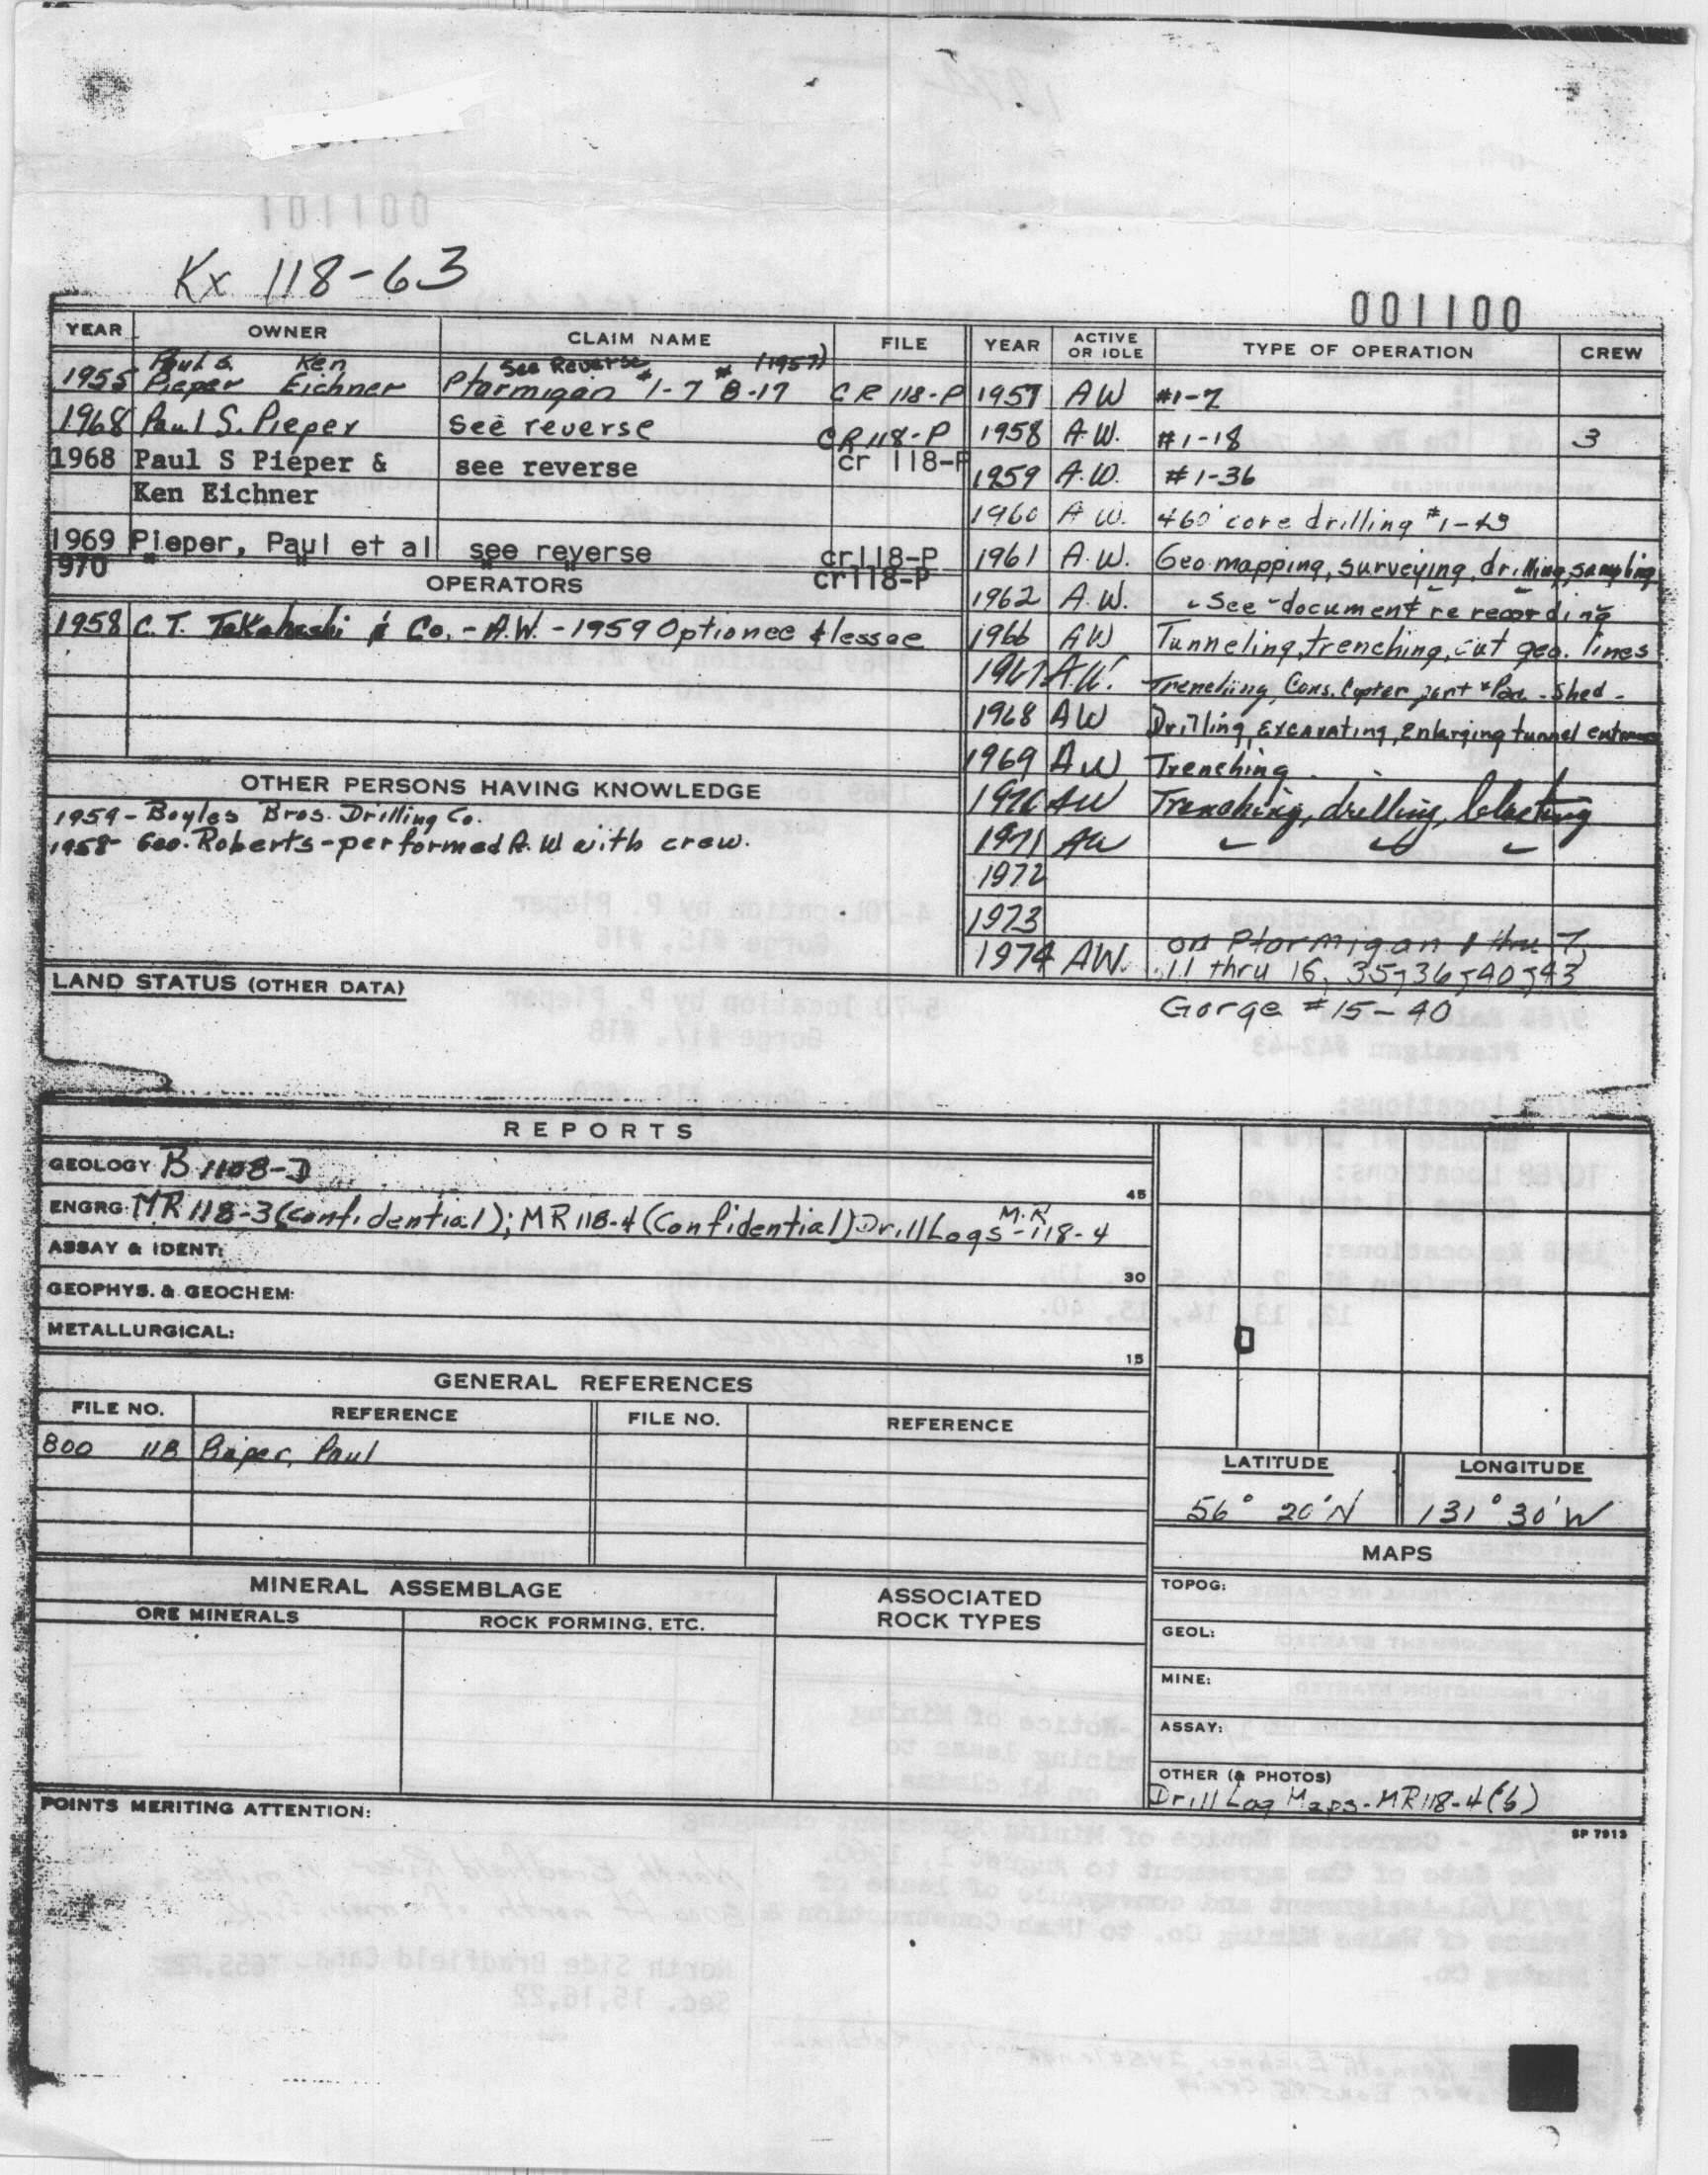 Kx 118-63
001100
YEAR OWNER CLAIM NAME FILE
1955 Paul S. Pieper Ken Eichner Ptarmigan #1-7 #8-17 (1957) See Reverse CR 118-P
1968 Paul S. Pieper See reverse CR118-P
1968 Paul S Pieper & see reverse cr 118-P
Ken Eichner
1969 Pieper, Paul et al see reverse cr118-P
1970 " " " " cr118-P
OPERATORS
1958 C.T. Takahashi & Co. - A.W. - 1959 Optionee & lessee
OTHER PERSONS HAVING KNOWLEDGE
1959 - Boyles Bros. Drilling Co.
1958 - Geo. Roberts - performed A.W with crew.
LAND STATUS (OTHER DATA)
YEAR ACTIVE OR IDLE TYPE OF OPERATION CREW
1957 AW #1-7
1958 A.W. #1-18 3
1959 A.W. #1-36
1960 A.W. 460' core drilling #1-43
1961 A.W. Geo mapping, surveying, drilling, sampling
1962 A.W. See document re recording
1966 AW Tunneling, trenching, cut geo. lines
1967 A.W. Trenching, Cons. Copter port & Shed -
1968 AW Drilling, Excavating, Enlarging tunnel entrance
1969 AW Trenching
1970 AW Trenching, drilling, blasting
1971 AW " " "
1972
1973
1974 AW. on Ptarmigan 1 thru 7,
11 thru 16, 35, 36, 40, 43
Gorge #15-40
REPORTS
GEOLOGY B 1108-D
45
ENGRG: MR 118-3 (Confidential); MR 118-4 (Confidential) Drill Logs - M.R 118-4
ASSAY & IDENT:
30
GEOPHYS. & GEOCHEM:
METALLURGICAL:
15
GENERAL REFERENCES
FILE NO. REFERENCE FILE NO. REFERENCE
800 118 Pieper, Paul
LATITUDE LONGITUDE
56° 20'N 131° 30'W
MINERAL ASSEMBLAGE
ORE MINERALS ROCK FORMING, ETC.
ASSOCIATED
ROCK TYPES
MAPS
TOPOG:
GEOL:
MINE:
ASSAY:
OTHER (& PHOTOS)
Drill Log Maps - MR118-4(6)
POINTS MERITING ATTENTION:
SP 7913